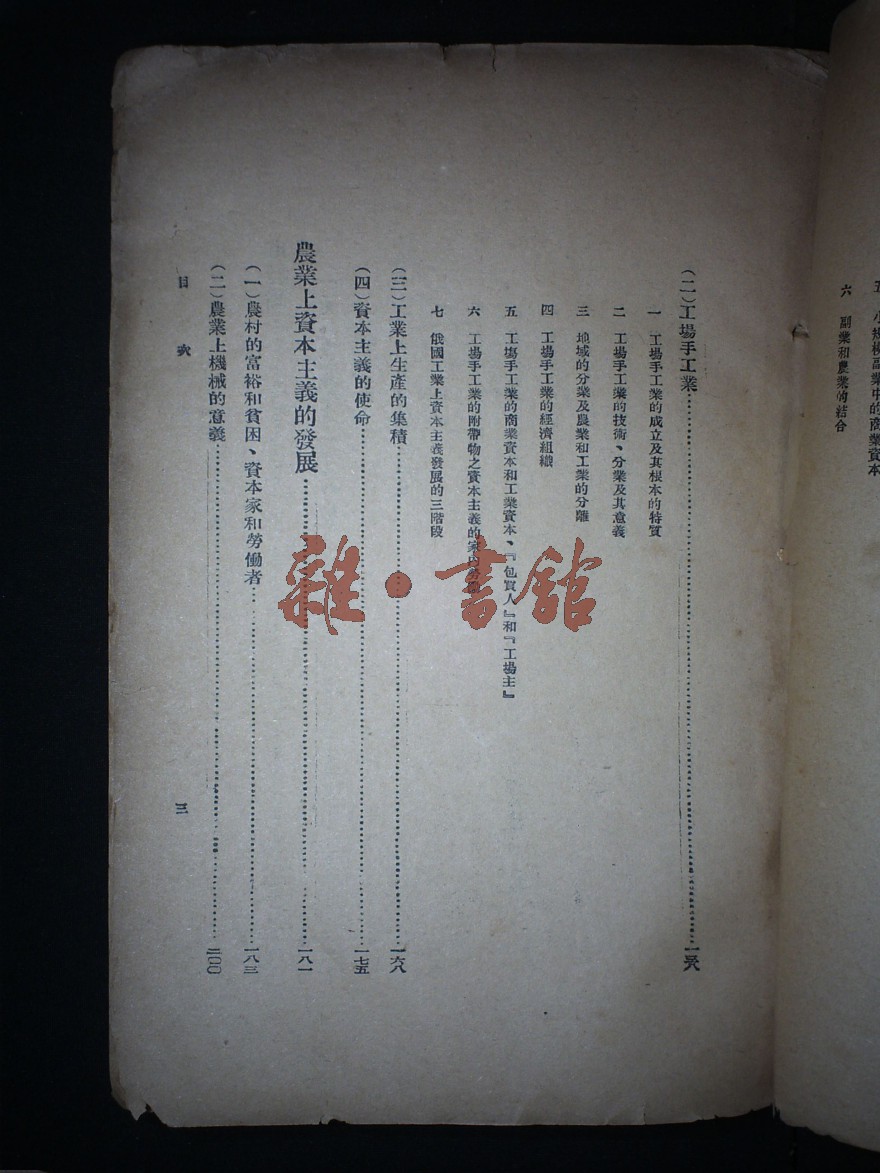 五 小規模副業中的商業資本
六 副業和農業的結合
(二)工場手工業……一三八
一 工場手工業的成立及其根本的特質
二 工場手工業的技術、分業及其意義
三 地域的分業及農業和工業的分離
四 工場手工業的經濟組織
五 工場手工業的商業資本和工業資本、『包買人』和『工場主』
六 工場手工業的附帶物之資本主義的家內勞
七 俄國工業上資本主義發展的三階段
(三)工業上生產的集積……一六八
(四)資本主義的使命……一七五
農業上資本主義的發展……一八一
(一)農村的富裕和貧困、資本家和勞働者……一八三
(二)農業上機械的意義……二〇〇
目 次
三
雜·書館